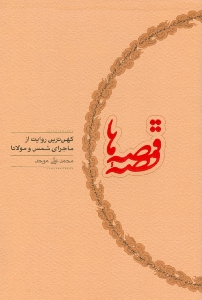 قصه
قصه‌ها
کهن‌ترین روایت از
ماجرای شمس و مولانا
محمدعلی موحد